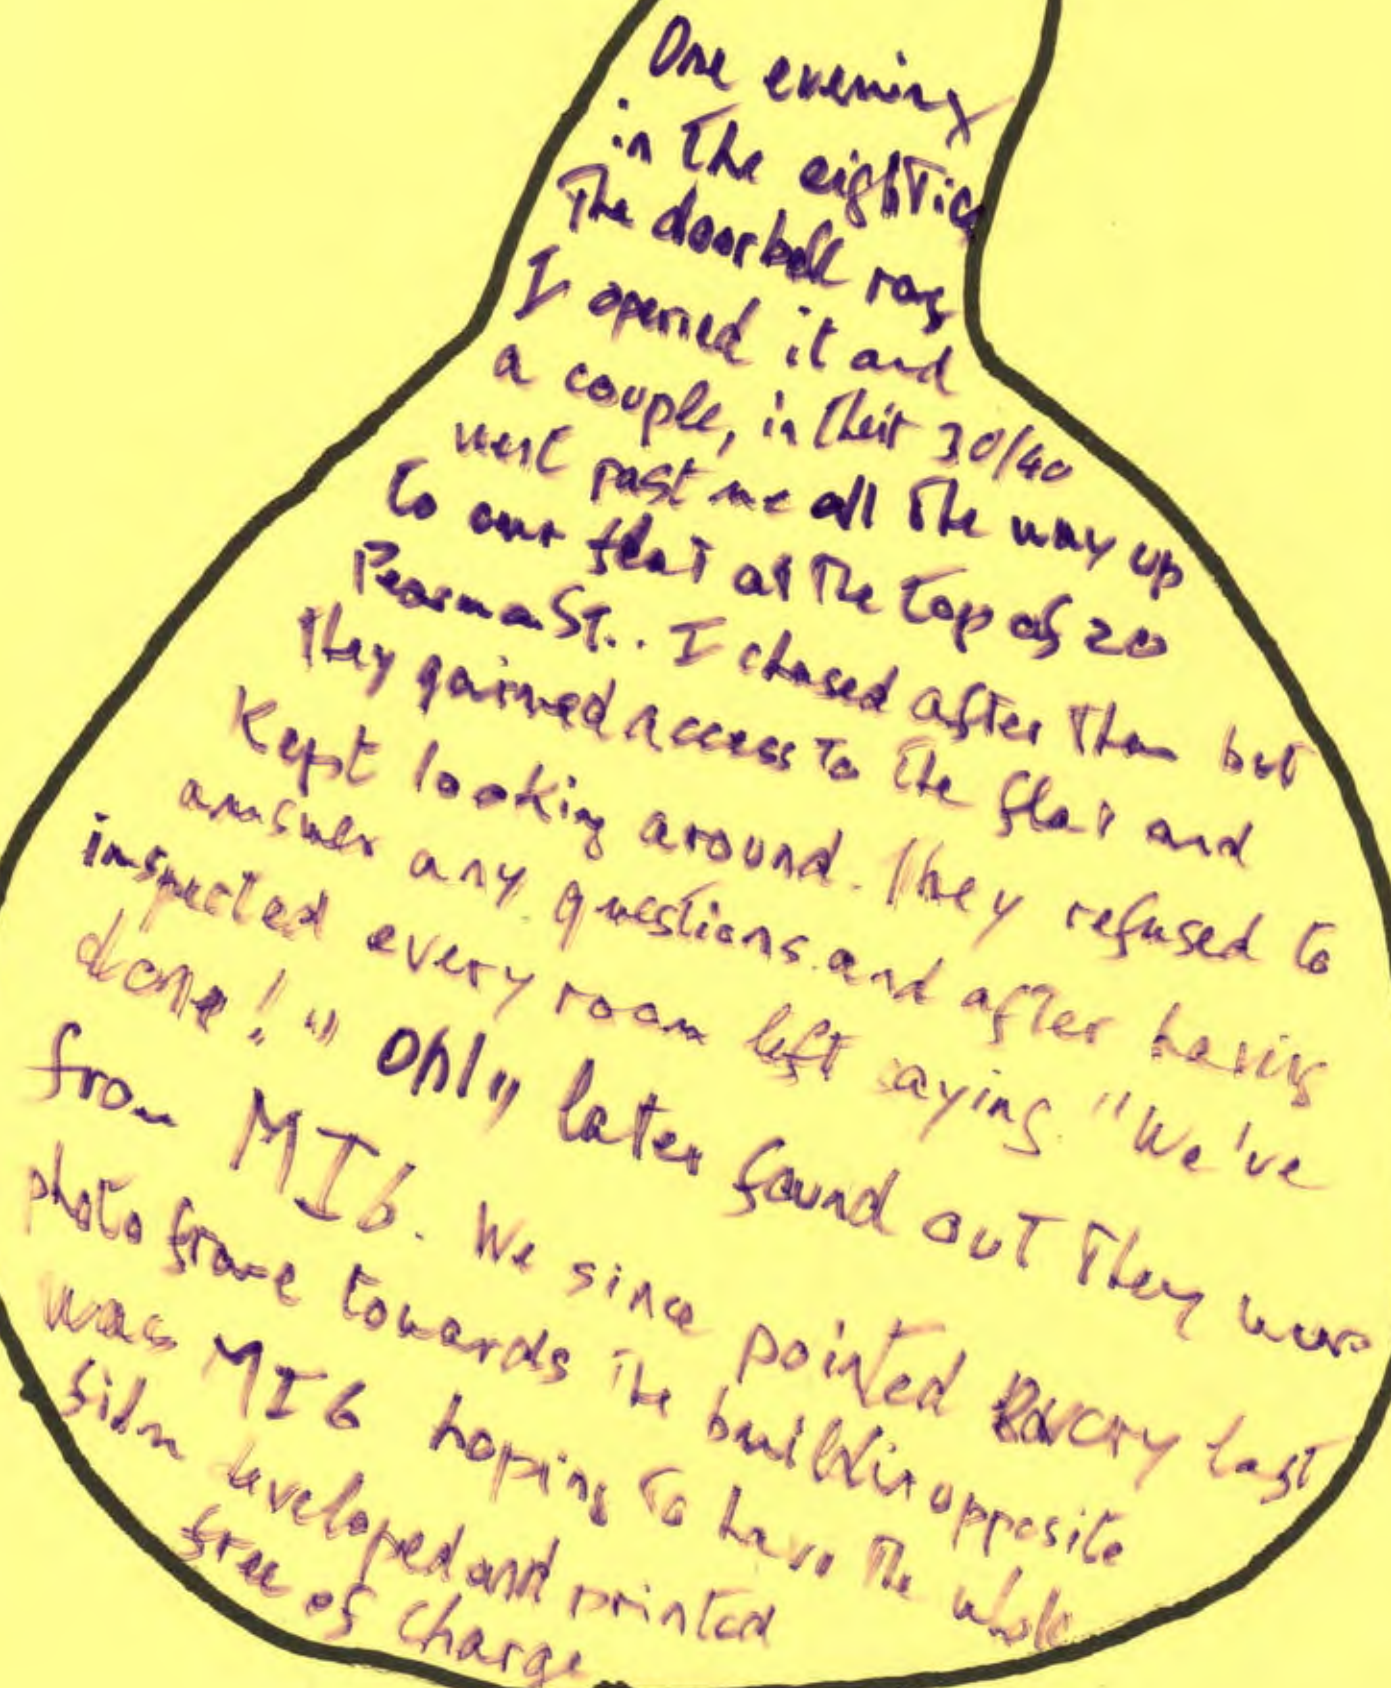 One evening
in the eighties
The doorbell rang
I opened it and
a couple, in their 30/40
went past me all the way up
to our flat at the top of 20
Pearman St.. I chased after them but
they gained access to the flat and
Kept looking around. They refused to
answer any questions and after having
inspected every room left saying "We've
done!" Only later found out they were
from MI6. We since pointed every last
photo frame towards the buildin opposite
was MI6 hoping to have the whole
film developed and printed
free of charge